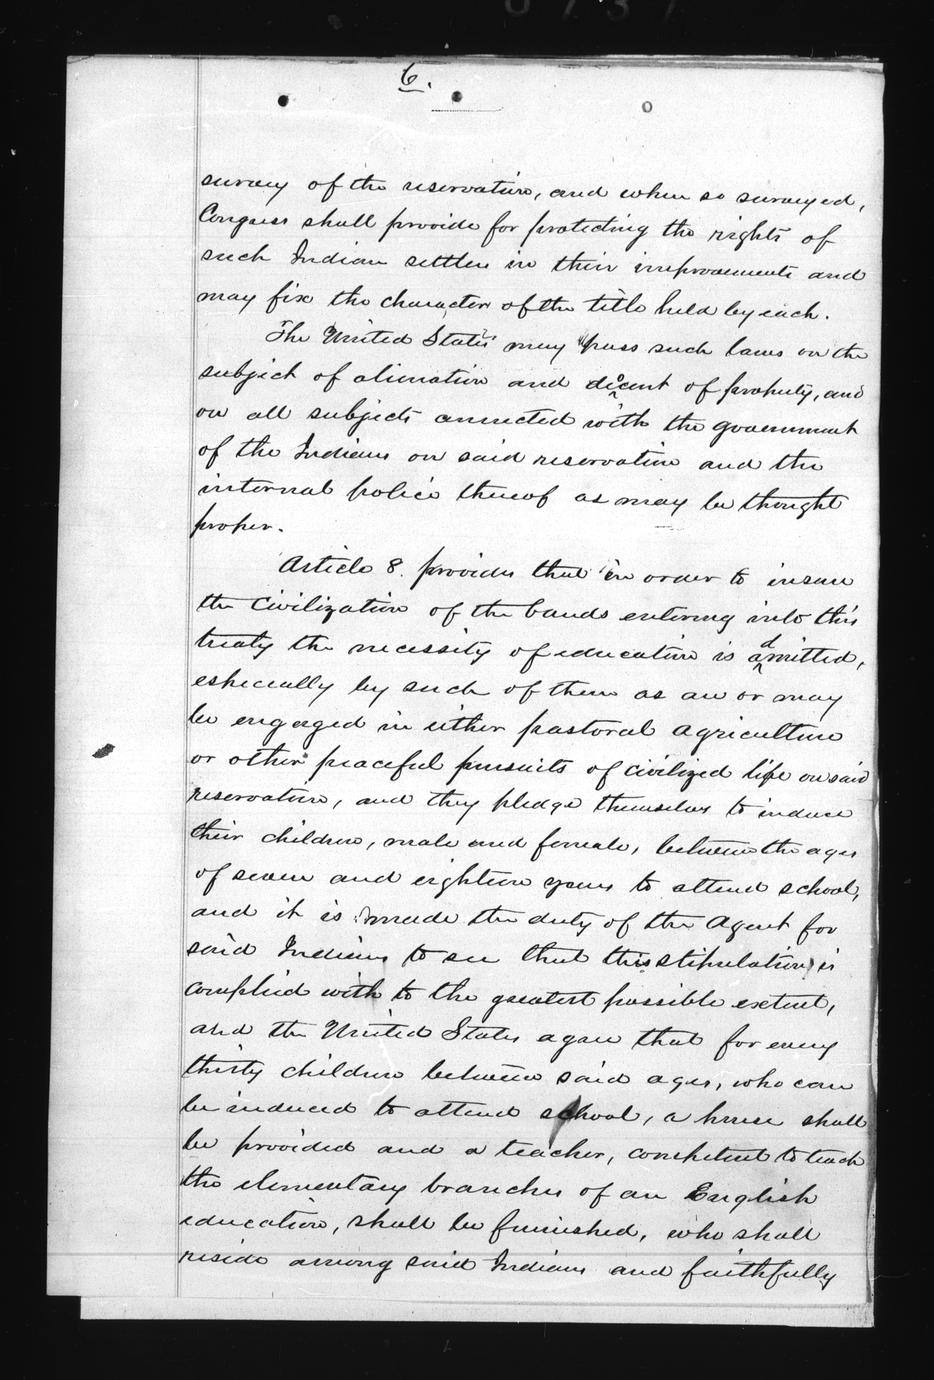 6.
survey of the reservation, and when so surveyed,
Congress shall provide for protecting the rights of
such Indian settlers in their improvements and
may fix the character of the title held by each.
The United States may pass such laws on the
subject of alienation and decent of property, and
on all subjects connected with the government
of the Indians on said reservation and the
internal police thereof as may be thought
proper.
Article 8. provides that "in order to insure
the civilization of the bands entering into this
treaty the necessity of education is admitted,
especially by such of them as are or may
be engaged in either pastoral agriculture
or other peaceful pursuits of civilized life on said
reservation, and they pledge themselves to induce
their children, male and female, between the ages
of seven and eighteen years to attend school,
and it is made the duty of the Agent for
said Indians to see that this stipulation is
complied with to the greatest possible extent,
and the United States agree that for every
thirty children between said ages, who can
be induced to attend school, a house shall
be provided and a teacher, competent to teach
the elementary branches of an English
education, shall be furnished, who shall
reside among said Indians and faithfully